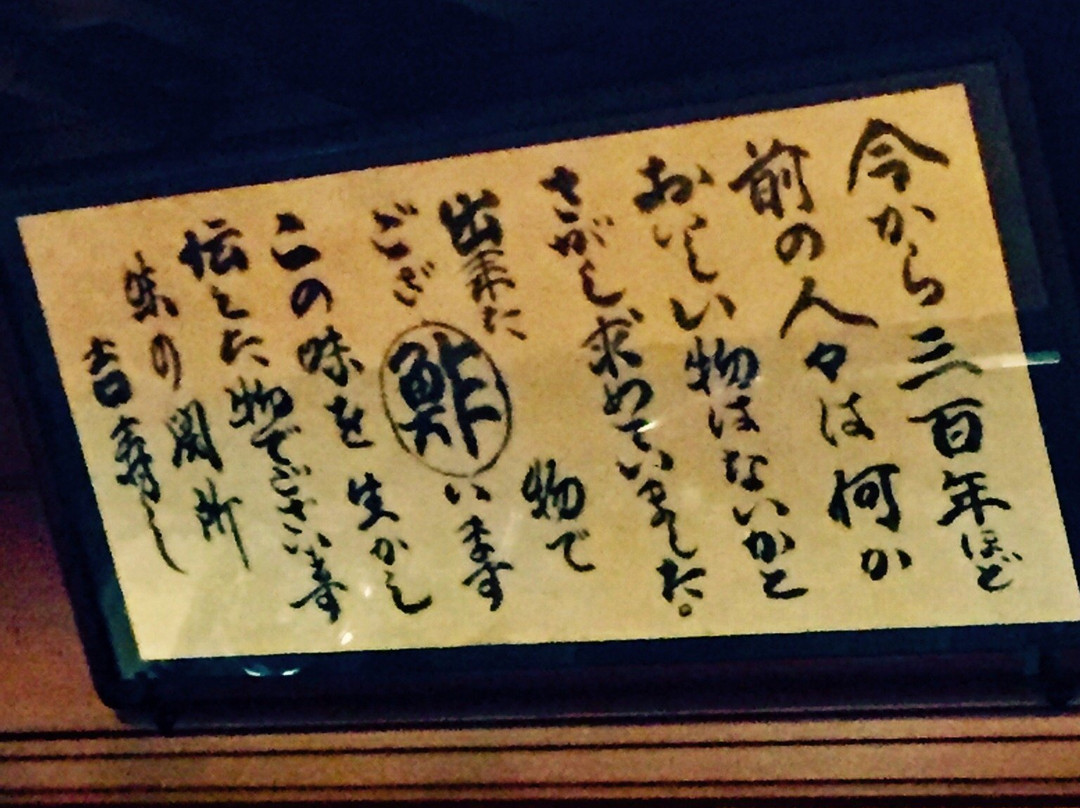 今から三百年ほど
前の人々は何か
おいしい物はないかと
さがし求めていました。
出来た 鮓 物で
ございます
この味を生かし
伝した物でございます
味の関所
吉寿し